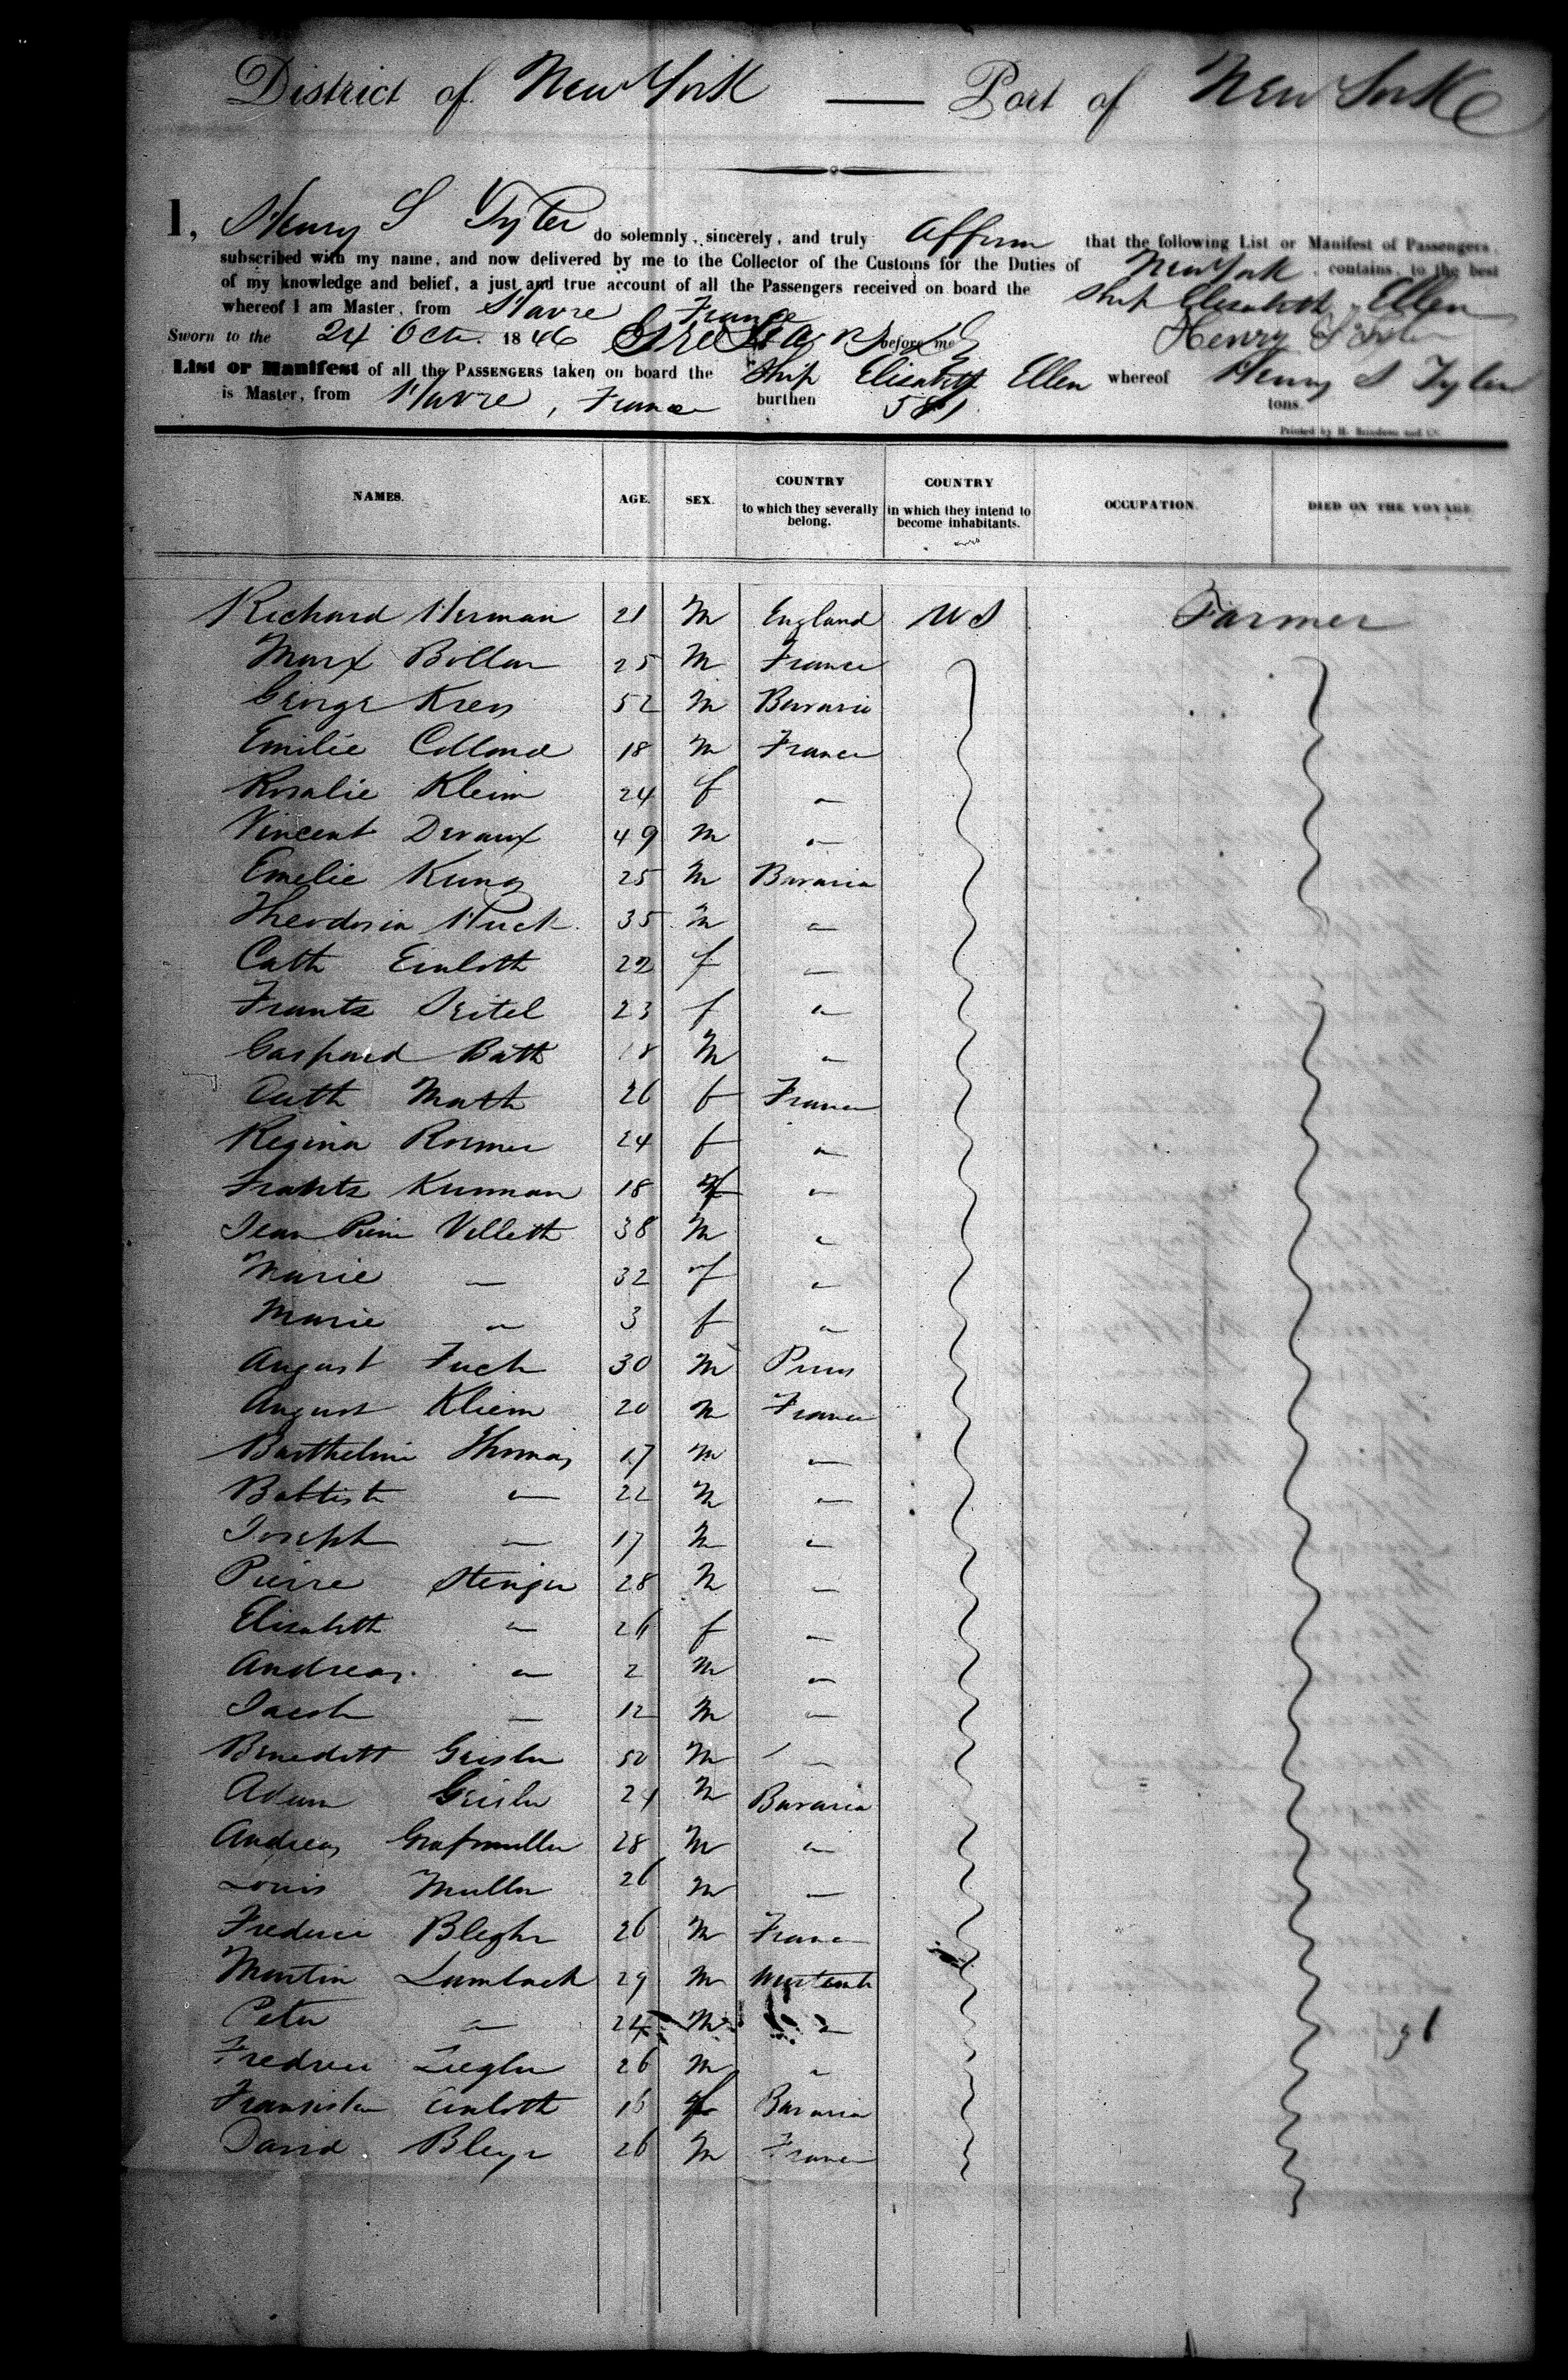 District of New York — Port of New York
I, Henry S Tyler do solemnly, sincerely, and truly affirm that the following List or Manifest of Passengers,
subscribed with my name, and now delivered by me to the Collector of the Customs for the Duties of New York, contains, to the best
of my knowledge and belief, a just and true account of all the Passengers received on board the Ship Elizabeth Ellen
whereof I am Master, from Havre France
Sworn to the 24 Oct. 1846 before me Henry S Tyler
List or Manifest of all the PASSENGERS taken on board the Ship Elizabeth Ellen whereof Henry S Tyler
is Master, from Havre, France burthen 581 tons.
NAMES. AGE. SEX. COUNTRY to which they severally belong. COUNTRY in which they intend to become inhabitants. OCCUPATION. DIED ON THE VOYAGE
Richard Herman 21 M England US Farmer
Marx Bollan 25 M France
George Kres 52 M Bavaria
Emilie Collond 18 M France
Rosalie Klein 24 f "
Vincent Devaux 49 M "
Emelie Kung 25 M Bavaria
Theodosia Huck 35 M "
Cath Einloth 22 f "
Frantz Seitel 23 f "
Gaspard Bath 18 M "
Cath Math 26 f France
Regina Romer 24 f "
Frantz Kunman 18 "
Jean Pierre Velleth 38 M "
Marie — 32 f "
Marie " 3 f "
August Fuch 30 M Pruss
August Kliem 20 M France
Barthelmi Thomas 17 M "
Babtist " 22 M "
Joseph " 17 M "
Pierre Stenger 28 M "
Elisabeth " 26 f "
Andreas " 2 M "
Jacob — 12 M "
Benedith Geisler 50 M "
Adam Geisler 24 M Bavaria
Andreas Grafmuller 28 M "
Louis Muller 26 M "
Frederic Bleghr 26 M France
Martin Lumbach 29 M Wurtemb
Peter " 24 M "
Fredric Ziegler 26 M "
Fransiska Einloth 16 f Bavaria
David Bleyr 26 M France